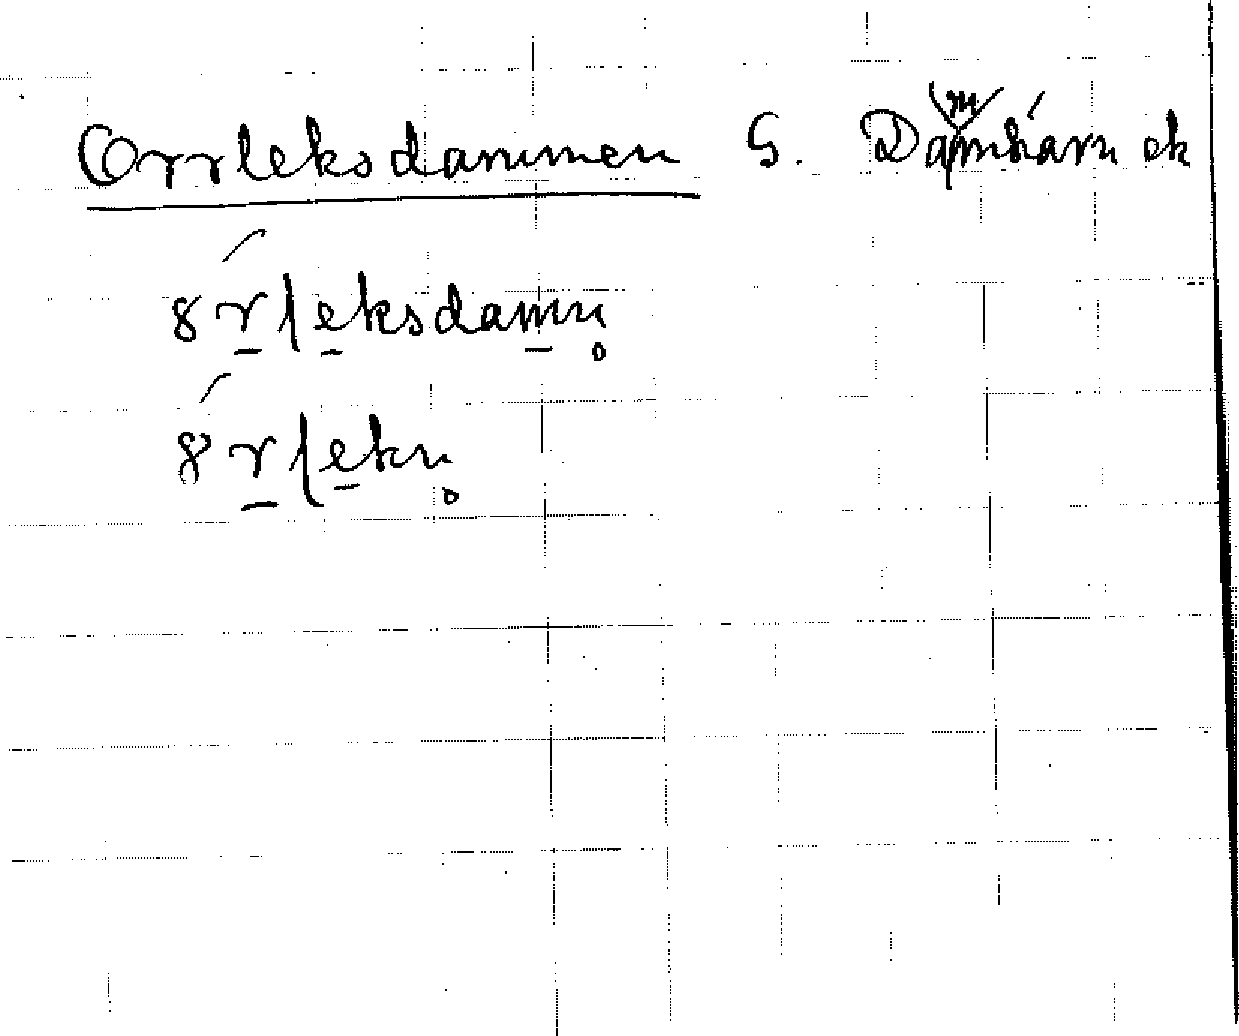 Orrleksdammen S. Dammkärn ek
8́r̲l̲e̲ksdam̲n̥
8́r̲le̲kn̥